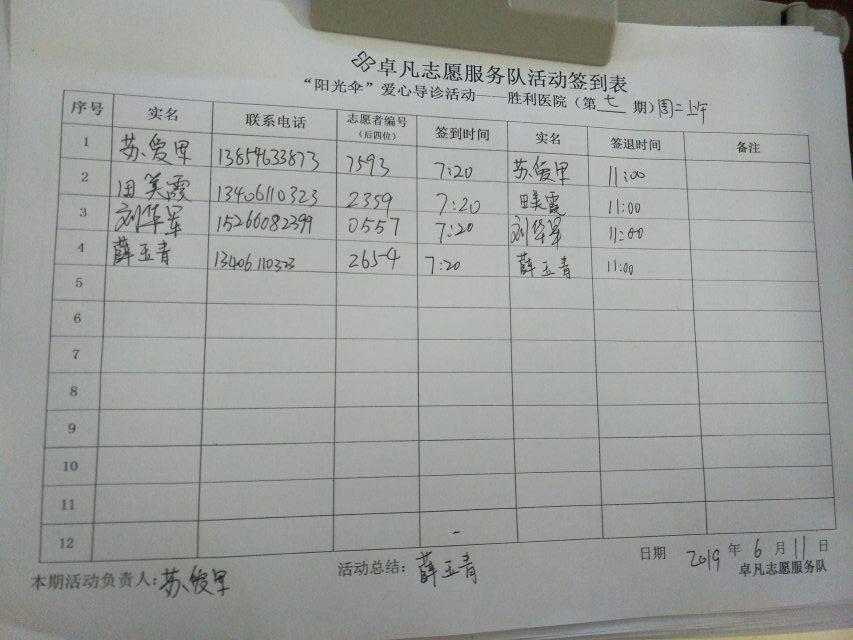 卓凡志愿服务队活动签到表
“阳光伞”爱心导诊活动——胜利医院（第 七 期）周二上午
序号 实名 联系电话 志愿者编号（后四位） 签到时间 实名 签退时间 备注
1 苏爱甲 13854633873 7593 7:20 苏爱甲 11:00
2 田美霞 13406110323 2359 7:20 田美霞 11:00
3 刘华军 15266082399 0557 7:20 刘华军 11:00
4 薛玉青 13406110323 2654 7:20 薛玉青 11:00
5
6
7
8
9
10
11
12
本期活动负责人：苏爱甲 活动总结：薛玉青 日期 2019 年 6 月 11 日
卓凡志愿服务队